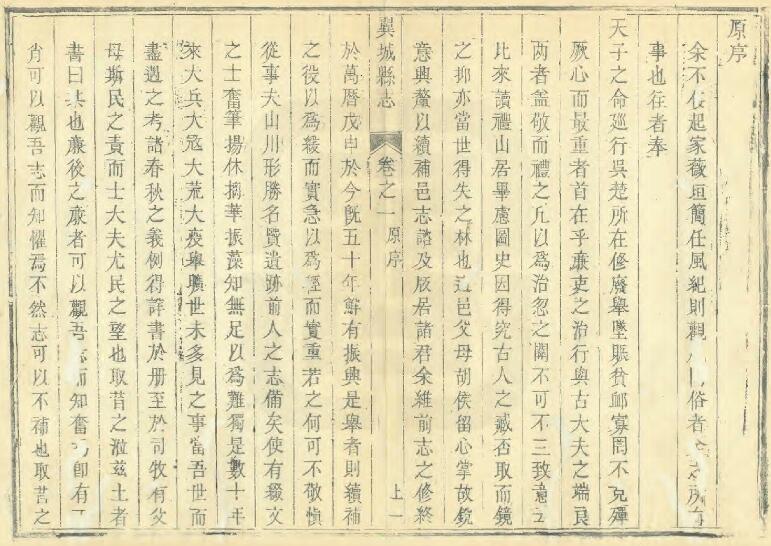 原序
余不佞起家薇垣簡任風紀則觀俗者所有
事也往者奉
天子之命廵行吳楚所在修廢舉墜賑貧卹寡罔不克殫
厥心而最重者首在乎亷吏之治行與古大夫之端良
两者盖敬而禮之凡以為治忽之關不可不三致意
比來讀禮山居畢慮圖史因得究古人之臧否取而鏡
之抑亦當世得失之林也邑父母胡侯留心掌故銳
意興釐以續補邑志諮及居諸君余維前志之修終
翼城縣志 卷之一 原序 上一
於萬曆戊申於今旣五十年鮮有振興是舉者則續補
之役以為緩而實急以為輕而實重若之何可不敬慎
從事夫山川形勝名賢遺跡前人之志備矣使有綴文
之士奮筆揚休摛華振藻知無足以為難獨是數十年
來大兵大寇大荒大疫舉曠世未多見之事當吾世而
盡遇之考諸春秋之義例得詳書於册至於司牧有父
母斯民之責而士大夫尤民之望也取昔之涖兹土者
書曰某也亷後之亷者可以觀吾志而知奮焉卽有不
肖可以觀吾志而知懼焉不然志可以不補也取昔之